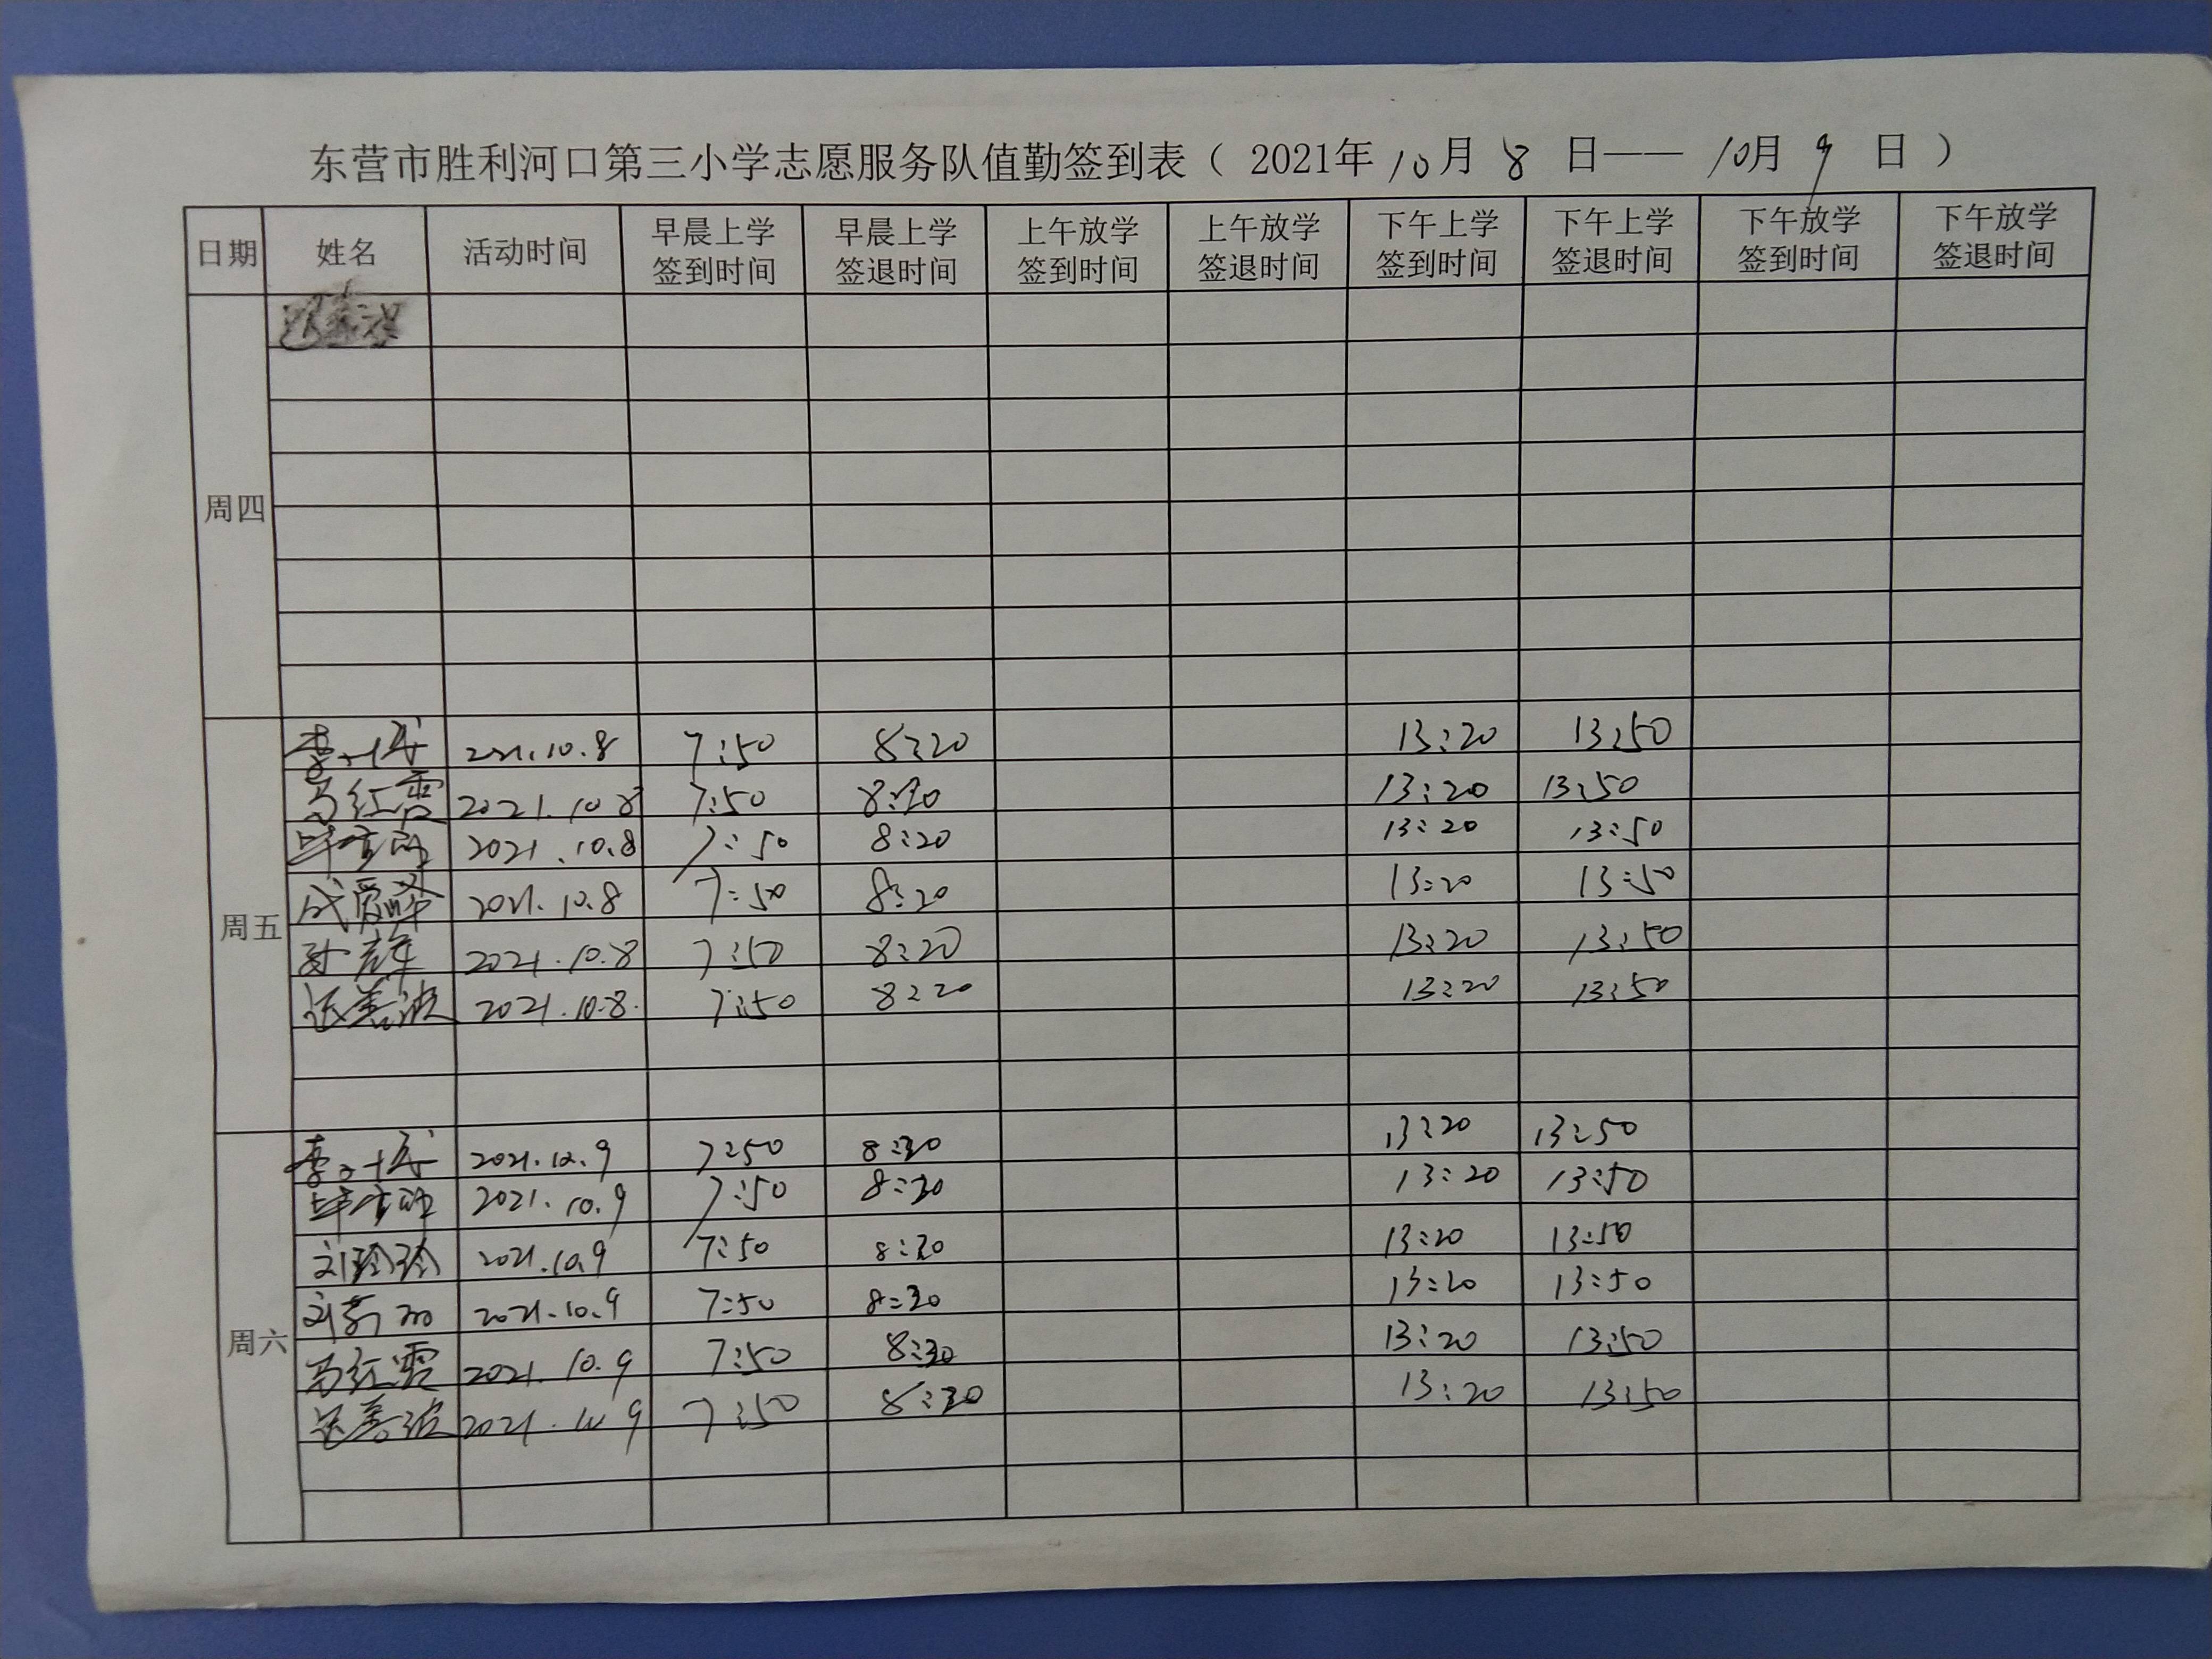 东营市胜利河口第三小学志愿服务队值勤签到表（ 2021年 10月 8 日—— 10月 9 日 ）
日期 姓名 活动时间 早晨上学签到时间 早晨上学签退时间 上午放学签到时间 上午放学签退时间 下午上学签到时间 下午上学签退时间 下午放学签到时间 下午放学签退时间
周四
周五
2021.10.8 7:50 8:20 13:20 13:50
马红霞 2021.10.8 7:50 8:20 13:20 13:50
2021.10.8 7:50 8:20 13:20 13:50
成爱峰 2021.10.8 7:50 8:20 13:20 13:50
2021.10.8 7:50 8:20 13:20 13:50
2021.10.8. 7:50 8:20 13:20 13:50
周六
2021.10.9 7:50 8:30 13:20 13:50
2021.10.9 7:50 8:30 13:20 13:50
刘玲玲 2021.10.9 7:50 8:30 13:20 13:50
2021.10.9 7:50 8:30 13:20 13:50
马红霞 2021.10.9 7:50 8:30 13:20 13:50
2021.10.9 7:50 8:30 13:20 13:50